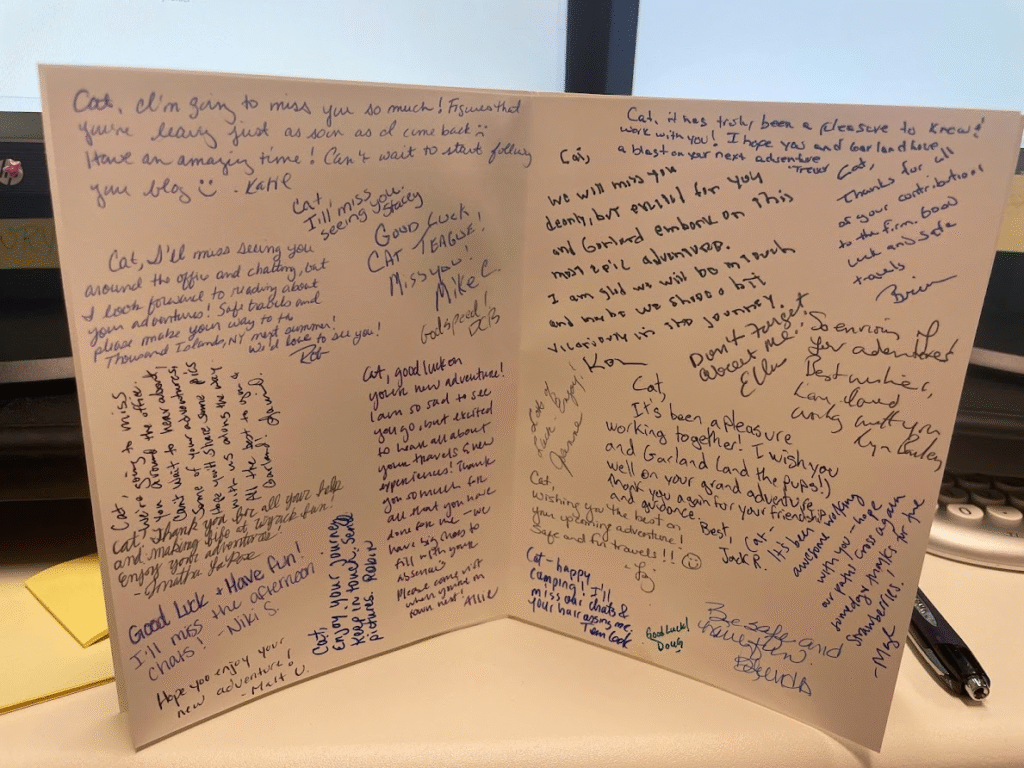 Cat, I'm going to miss you so much! Figures that
you're leaving just as soon as I come back
Have an amazing time! Can't wait to start following
your blog - Katie
Cat,
I'll miss
seeing you.
Stacey
GOOD LUCK
CAT TEAGUE!
Miss you!
Mike C
Godspeed!
DCB
Cat, I'll miss seeing you
around the office and chatting, but
I look forward to reading about
your adventures! Safe travels and
please make your way to the
Thousand Islands, NY next summer!
We'd love to see you!
Rob
Cat,
We're going to miss
you around the office.
Can't wait to hear about
some of your adventures,
Hope you'll share some pics
with us along the way
All the best to you &
Garland!
Cat, Thank you for all your help
and making life at Wyrick fun!
Enjoy your adventure.
Good luck + Have fun!
I'll miss the afternoon
chats! - Niki S.
Hope you enjoy your
new adventure!
- Matt U.
Cat,
Enjoy your journey
keep in touch. Send
pictures. Robin
Cat, good luck on
your new adventure!
I am so sad to see
you go, but excited
to hear all about
your travels & new
experiences! Thank
you so much for
all that you have
done for me - we
have big shoes to
fill with your
absence.
Please come visit
when you're in
town next! Allie
Cat, it has truly been a pleasure to know &
work with you! I hope you and Garland have
a blast on your next adventure
- Trevor
Cat,
We will miss you
dearly, but excited for you
and Garland embark on this
most epic adventure.
I am glad we will be in touch
and maybe we share a bit
vicariously in the journey.
Ken
Cat,
Thanks for all
of your contributions
to the firm. Good
luck and safe
travels
Brian
Don't forget
about me!
Ellen
So envious of
your adventures!
Best wishes,
I enjoyed
working with you
Lots of
Love Enjoy!
Cat,
It's been a pleasure
working together! I wish you
and Garland (and the pups!)
well on your grand adventure.
Thank you again for your friendship
and guidance.
Best,
Jack P.
Cat,
Wishing you the best on
your upcoming adventure!
Safe and fun travels!!!
- Ly
Cat - happy
camping! I'll
miss our chats &
your hair
Tom Cook
Good luck!
Doug
Cat,
It's been awesome working
with you - hope
our paths cross again
someday! Thanks for the
strawberries!
- Mast
Be safe and
have fun!